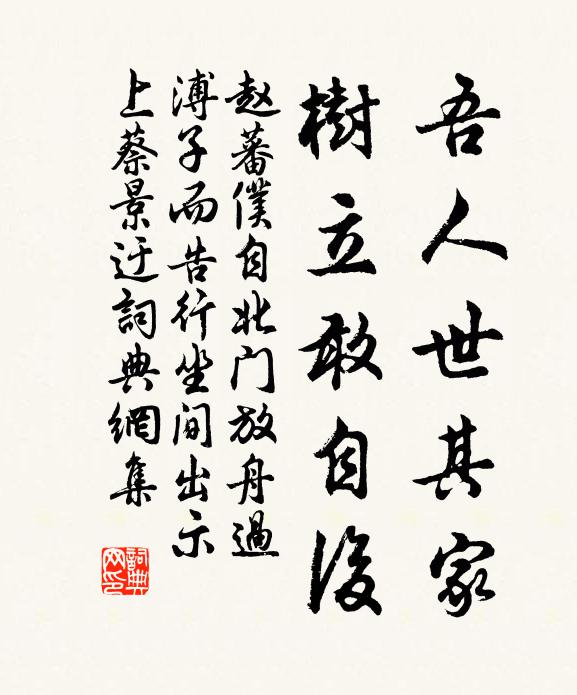 吾人世其家
樹立敢自後
赵蕃僕自北门放舟過
溥子而告行坐間出示
上蔡景迂詞典網集
詞典网印